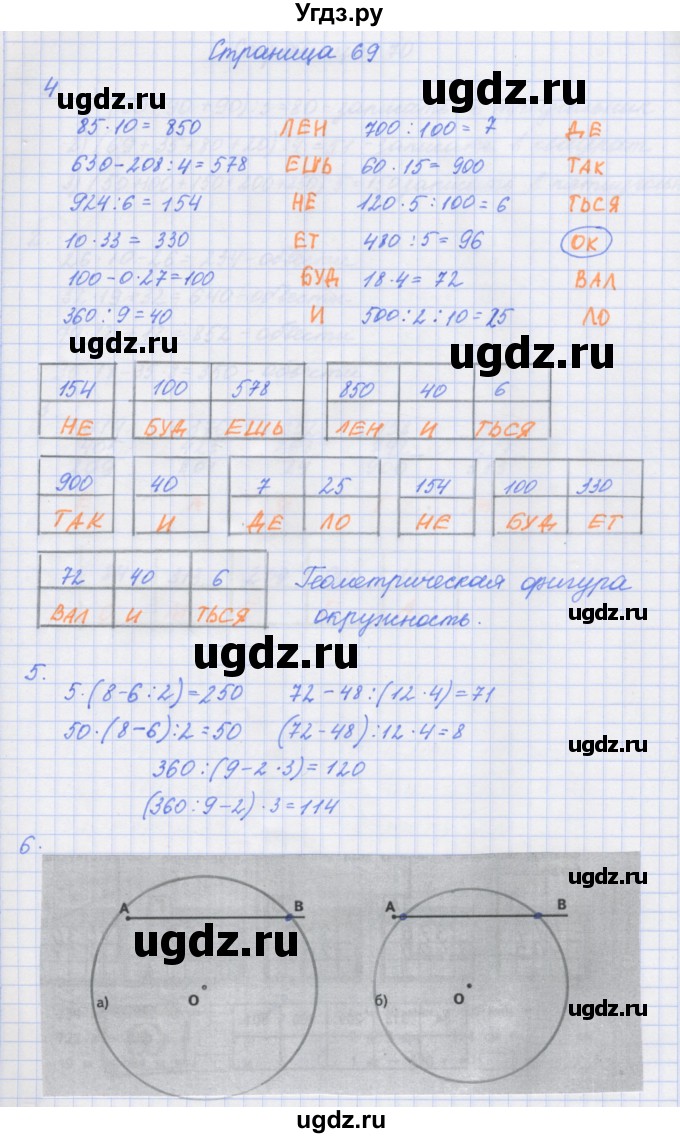 Угдз.ру
Страница 69
4
ugdz.ru ugdz.ru
85·10= 850 ЛЕН 700:100=7 ДЕ
630-208:4=578 ЕШЬ 60·15=900 ТАК
924:6=154 НЕ 120·5:100=6 ТЬСЯ
10·33= 330 ЕТ 480:5=96 ОК
100-0·27=100 БУД 18·4=72 ВАЛ
360:9=40 И 500:2:10=25 ЛО
ugdz.ru ugdz.ru
154 100 578 850 40 6
НЕ БУД ЕШЬ ЛЕН И ТЬСЯ
900 40 7 25 154 100 330
ТАК И ДЕ ЛО НЕ БУД ЕТ
72 40 6 Геометрическая фигура
ВАЛ И ТЬСЯ окружность.
ugdz.ru ugdz.ru
5.
5·(8-6:2)=250 72-48:(12·4)=71
50·(8-6):2=50 (72-48):12·4=8
ugdz.ru
360:(9-2·3)=120
(360:9-2)·3=114
6.
ugdz.ru
А В А В
ugdz.ru
а) О б) О
ugdz.ru
ugdz.ru